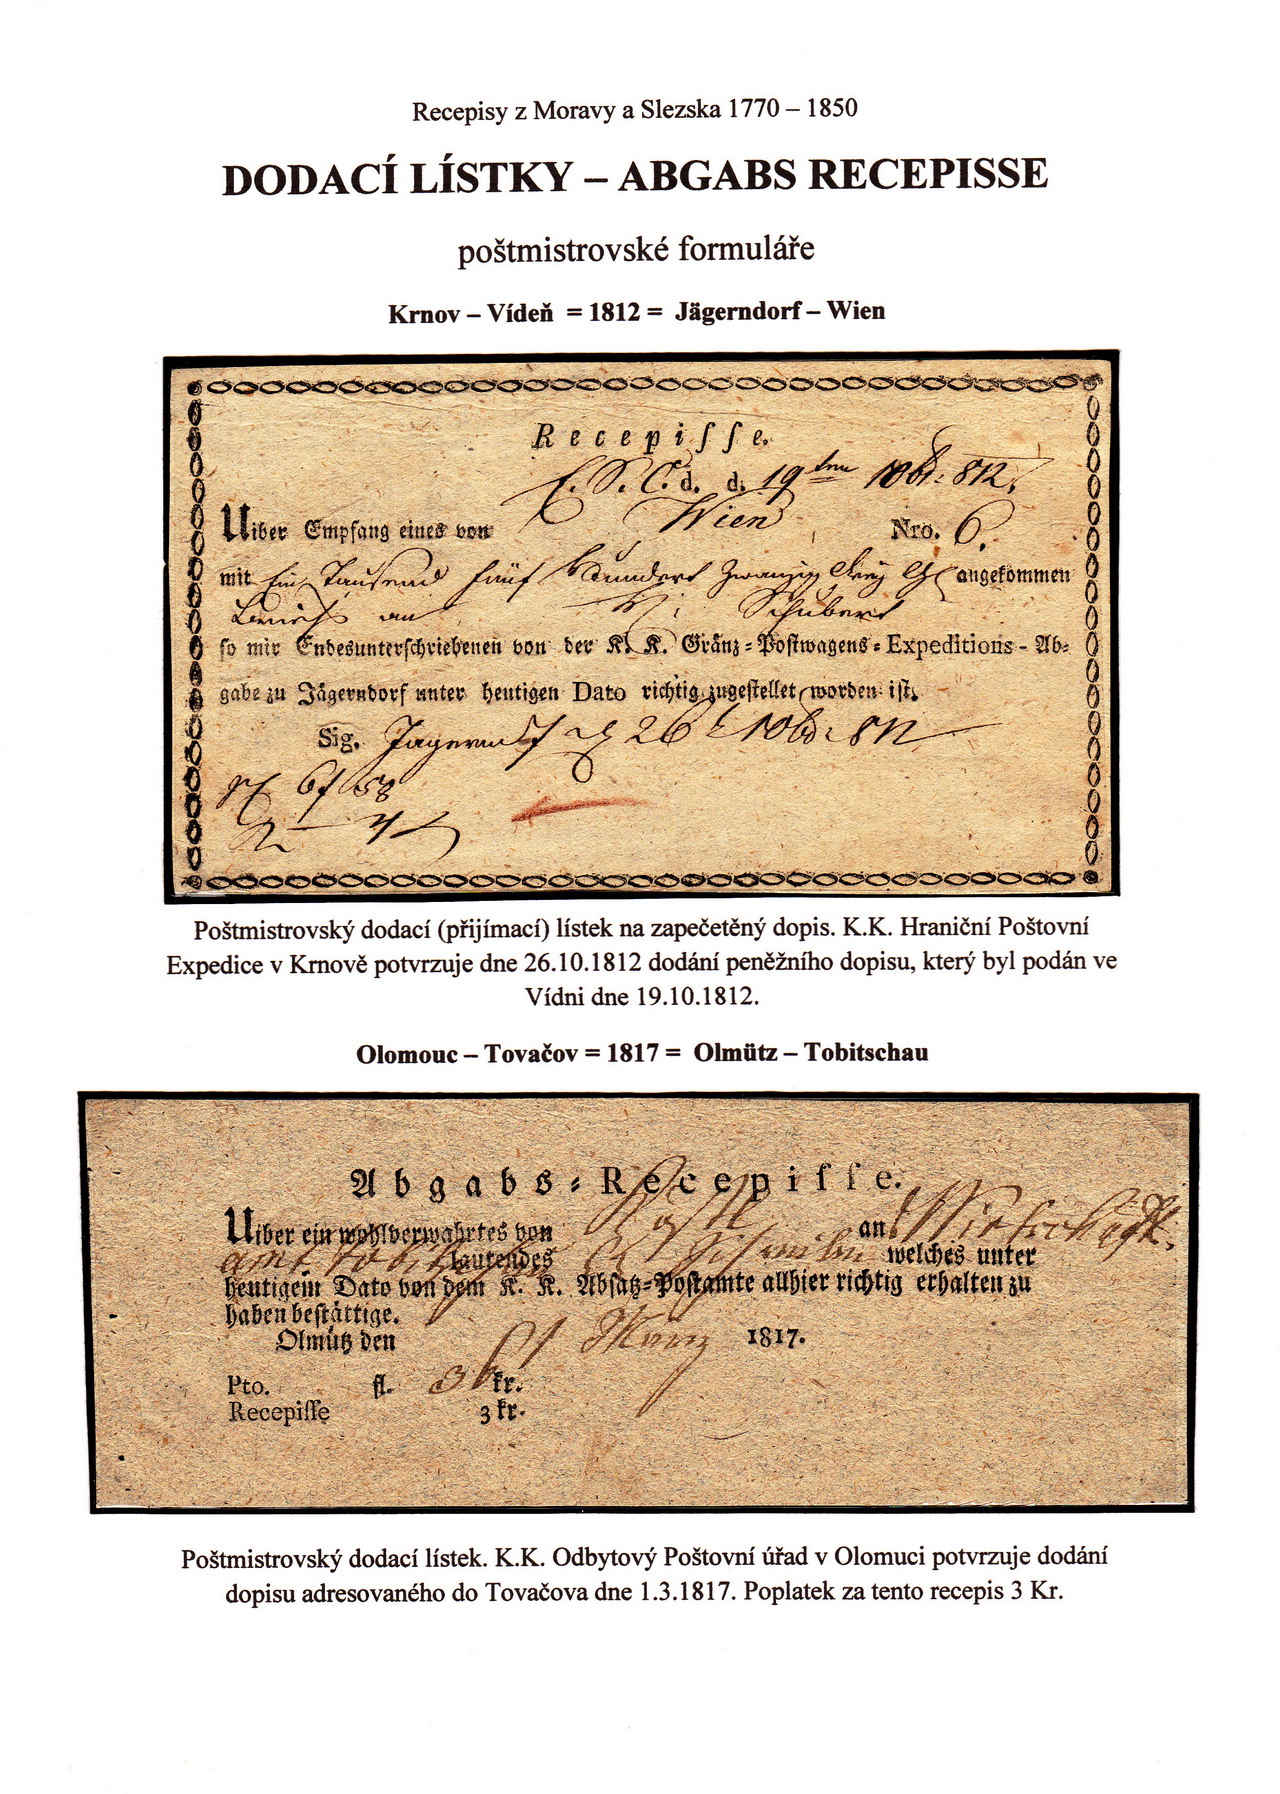 Recepisy z Moravy a Slezska 1770 – 1850
DODACÍ LÍSTKY – ABGABS RECEPISSE
poštmistrovské formuláře
Krnov – Vídeň = 1812 = Jägerndorf – Wien
Recepiſſe.
d. d. 19 812.
Uiber Empfang eines von Wien Nro. 6.
mit Ein Tausend fünf Hundert Zwanzig angekommen
an Schubert
ſo mir Endesunterſchriebenen von der K. K. Gränz-Poſtwagens-Expeditions-Ab-
gabe zu Jägerndorf unter heutigen Dato richtig zugeſtellet worden iſt.
Sig. Jägerndorf 26 812
6f 58
Poštmistrovský dodací (přijímací) lístek na zapečetěný dopis. K.K. Hraniční Poštovní
Expedice v Krnově potvrzuje dne 26.10.1812 dodání peněžního dopisu, který byl podán ve
Vídni dne 19.10.1812.
Olomouc – Tovačov = 1817 = Olmütz – Tobitschau
Abgabs-Recepiſſe.
Uiber ein wohlverwahrtes von an
amt lautendes welches unter
heutigem Dato von dem K. K. Abſatz-Poſtamte allhier richtig erhalten zu
haben beſtättige.
Olmütz den 1 März 1817.
Pto. fl. 36 kr.
Recepiſſe 3 kr.
Poštmistrovský dodací lístek. K.K. Odbytový Poštovní úřad v Olomuci potvrzuje dodání
dopisu adresovaného do Tovačova dne 1.3.1817. Poplatek za tento recepis 3 Kr.